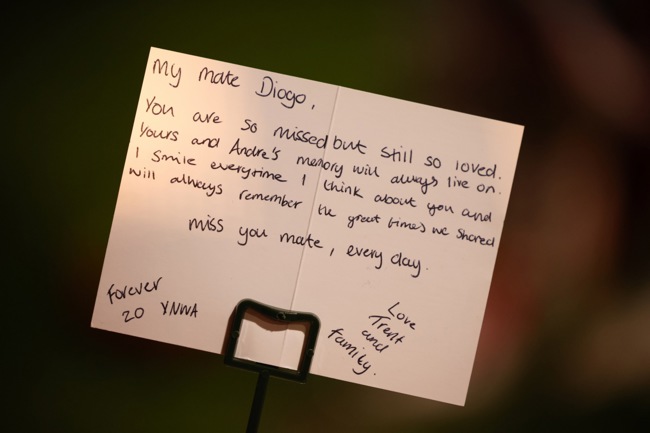 My mate Diogo,
You are so missed but still so loved.
Yours and Andre's memory will always live on.
I smile everytime I think about you and
will always remember the great times we shared
miss you mate, every day.
Forever
20 YNWA
Love
Trent
and
family.